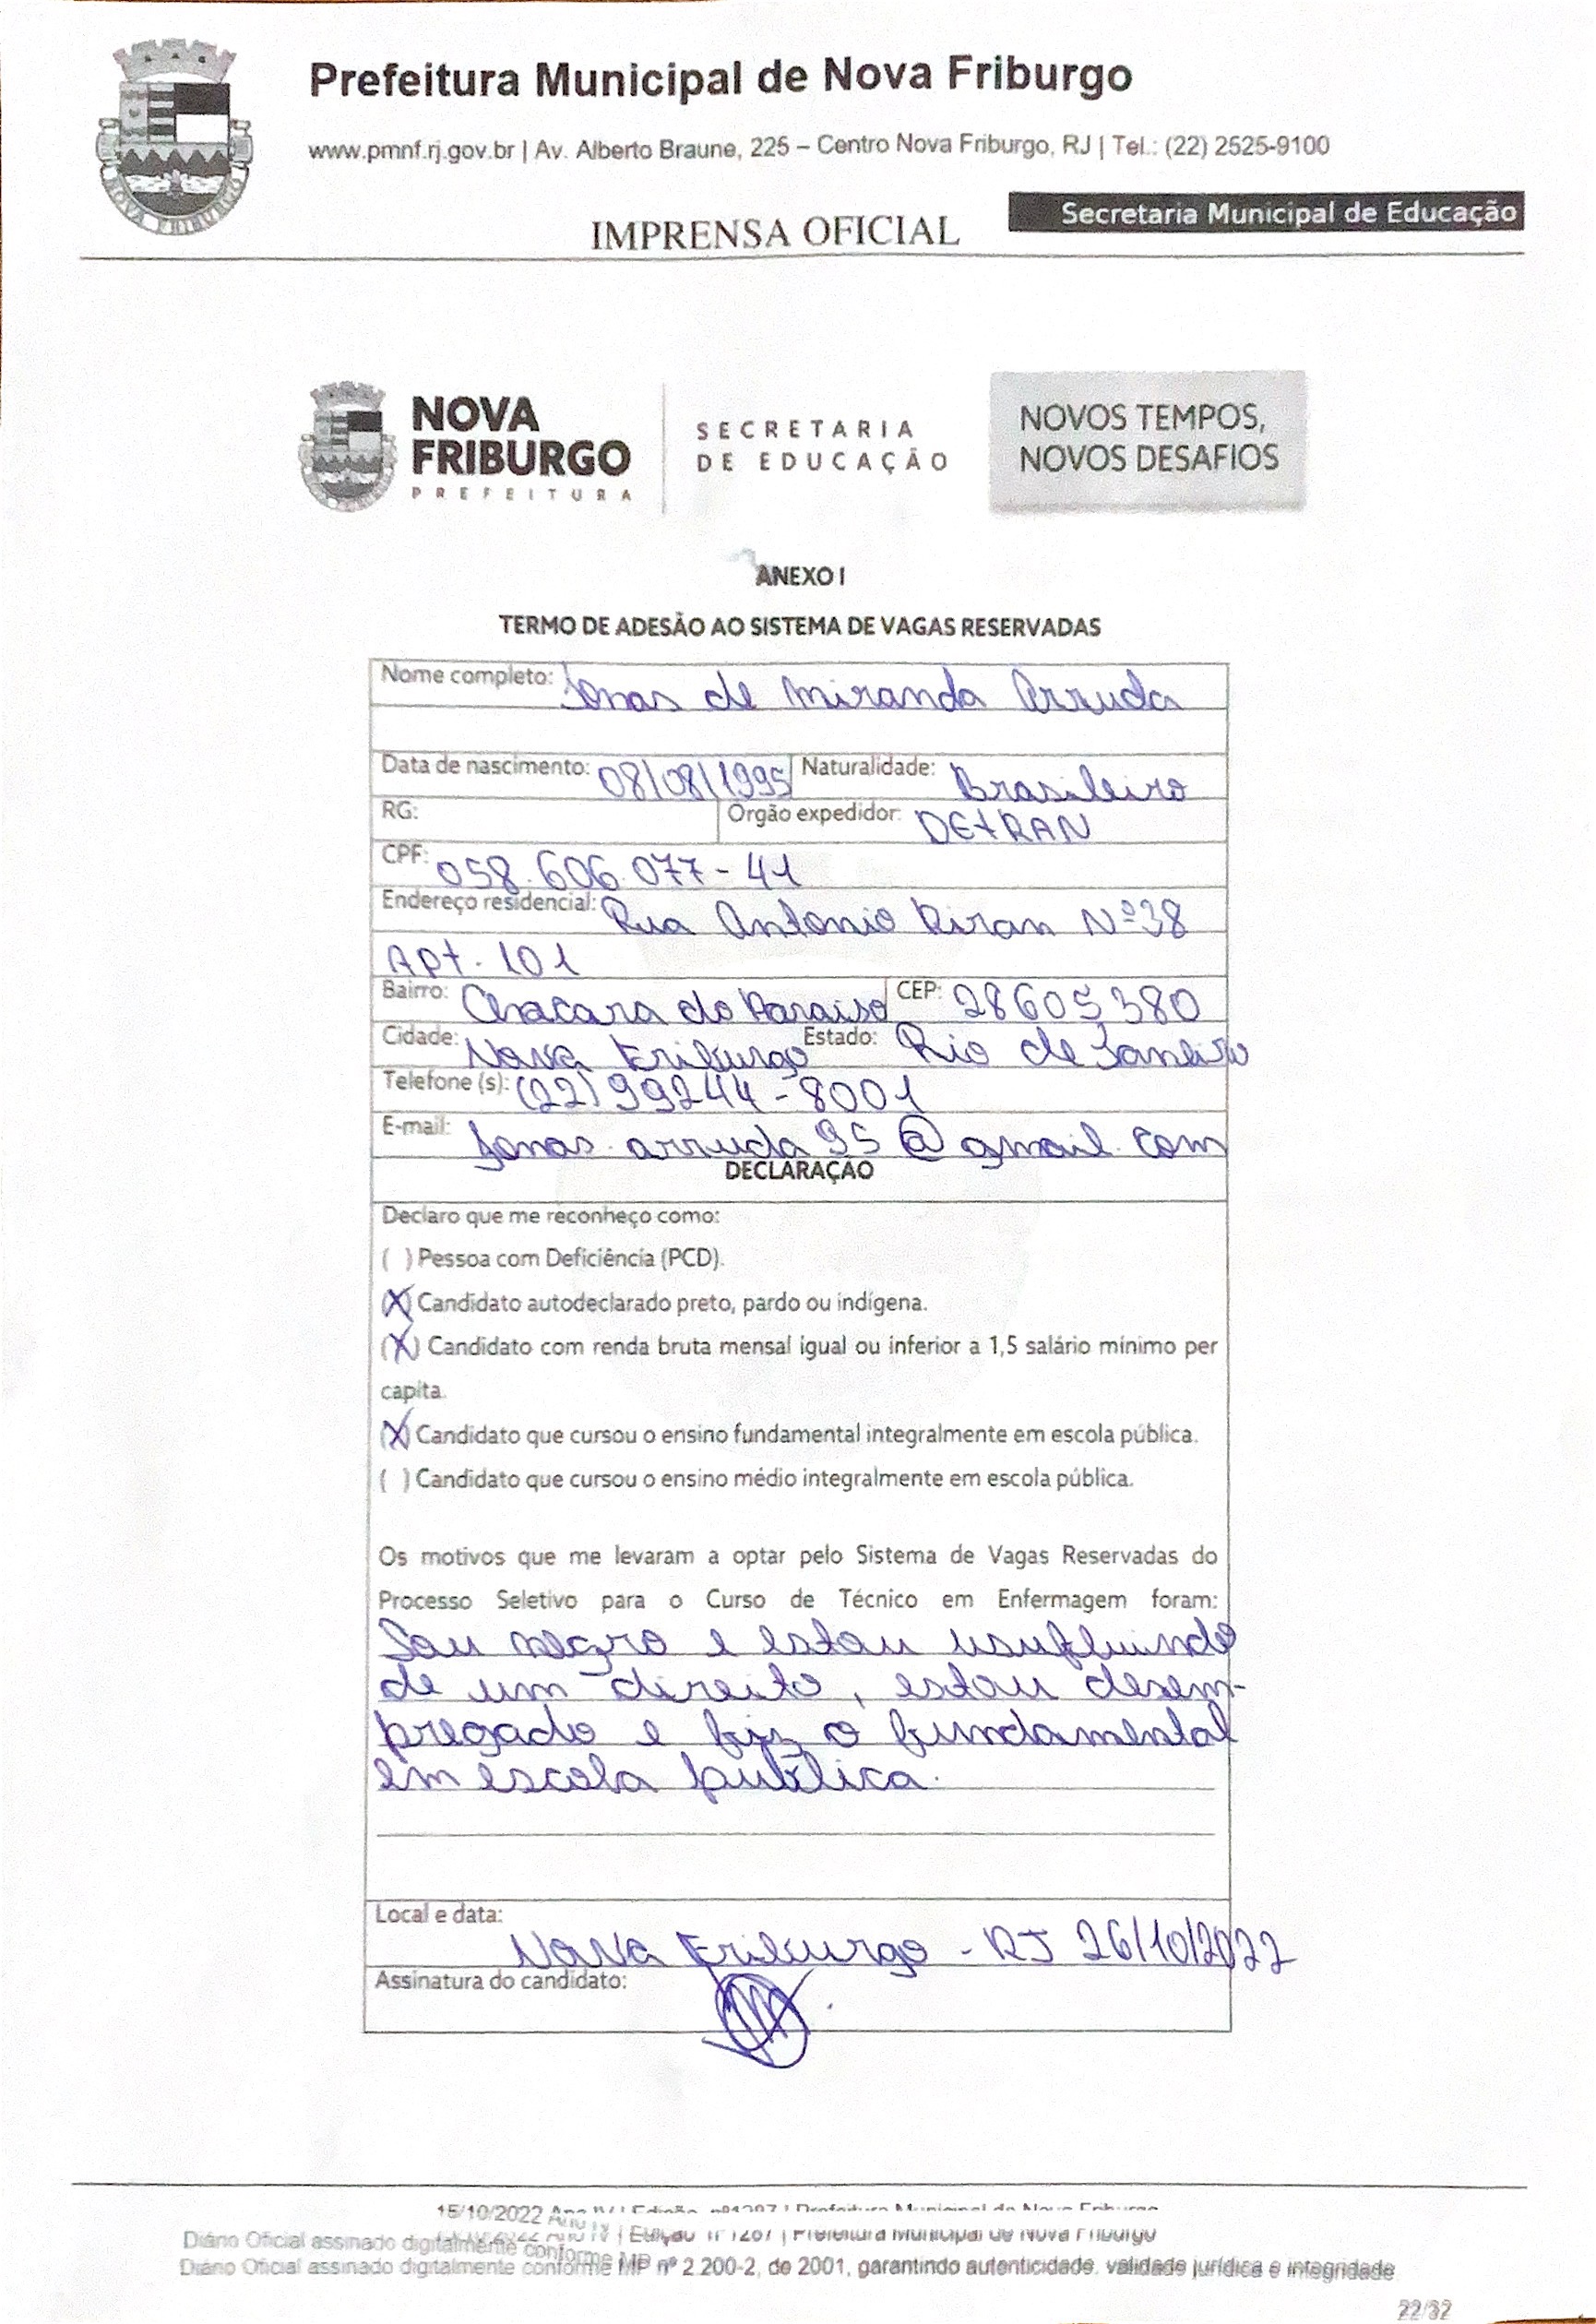 Prefeitura Municipal de Nova Friburgo
www.pmnf.rj.gov.br | Av. Alberto Braune, 225 – Centro Nova Friburgo, RJ | Tel.: (22) 2525-9100
Secretaria Municipal de Educação
IMPRENSA OFICIAL
NOVA FRIBURGO
NOVA
FRIBURGO
PREFEITURA
SECRETARIA
DE EDUCAÇÃO
NOVOS TEMPOS,
NOVOS DESAFIOS
ANEXO I
TERMO DE ADESÃO AO SISTEMA DE VAGAS RESERVADAS
Nome completo: Jonas de Miranda Arruda
Data de nascimento: 08/08/1995 Naturalidade: Brasileiro
RG: Orgão expedidor: DETRAN
CPF: 058.606.077-41
Endereço residencial: Rua Antonio Nº 38
Apt. 101
Bairro: Chacara do Paraiso CEP: 28605380
Cidade: Nova Friburgo Estado: Rio de Janeiro
Telefone (s): (22) 99244-8001
E-mail: jonas.arruda95@gmail.com
DECLARAÇÃO
Declaro que me reconheço como:
( ) Pessoa com Deficiência (PCD).
(X) Candidato autodeclarado preto, pardo ou indígena.
(X) Candidato com renda bruta mensal igual ou inferior a 1,5 salário mínimo per
capita.
(X) Candidato que cursou o ensino fundamental integralmente em escola pública.
( ) Candidato que cursou o ensino médio integralmente em escola pública.
Os motivos que me levaram a optar pelo Sistema de Vagas Reservadas do
Processo Seletivo para o Curso de Técnico em Enfermagem foram:
Sou negro e estou usufluindo
de um direito, estou desem-
pregado e fiz o fundamental
em escola pública.
Local e data:
Nova Friburgo - RJ 26/10/2022
Assinatura do candidato:
15/10/2022 Ano IV | Edição nº1287 | Prefeitura Municipal de Nova Friburgo
Diário Oficial assinado digitalmente conforme MP nº 2.200-2, de 2001, garantindo autenticidade, validade jurídica e integridade
22/32